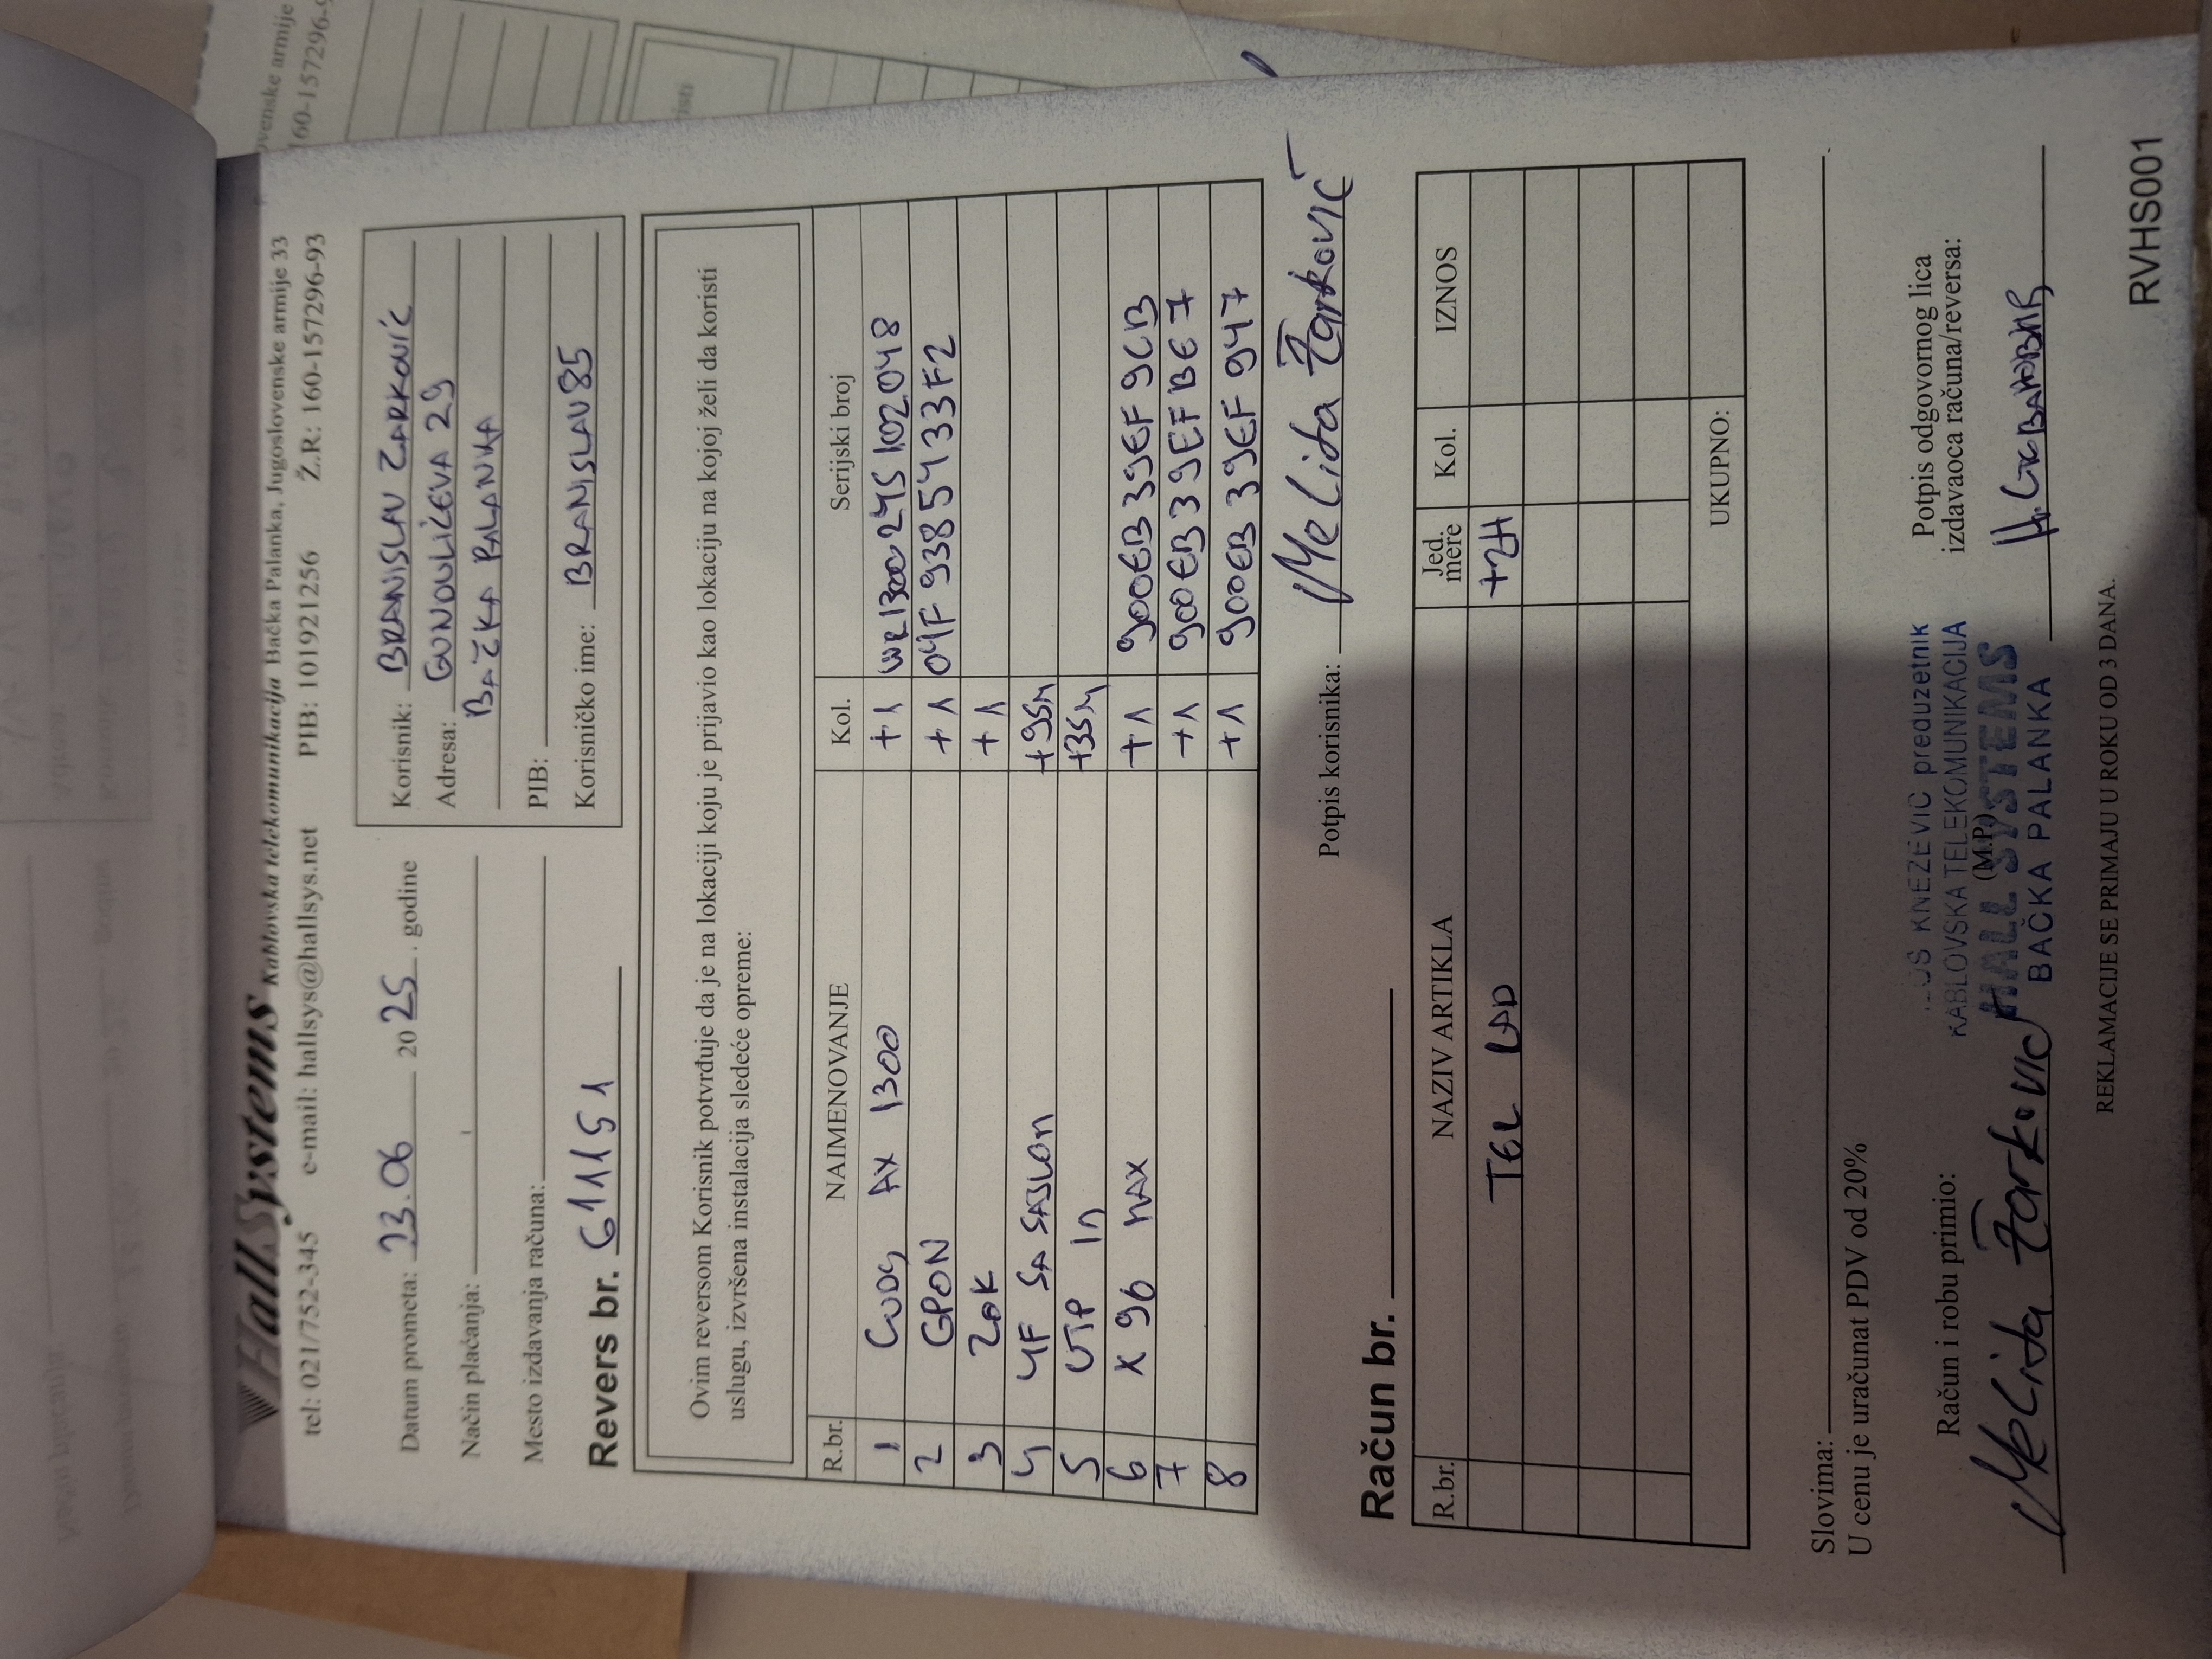 HallSystems Kablovska telekomunikacija Bačka Palanka, Jugoslovenske armije 33
tel: 021/752-345 e-mail: hallsys@hallsys.net PIB: 101921256 Ž.R: 160-157296-93
Datum prometa: 23.06 2025. godine
Način plaćanja:
Mesto izdavanja računa:
Revers br. 611151
Korisnik: BRANISLAV ZARKOVIĆ
Adresa: GUNDULIĆEVA 29
BAČKA PALANKA
PIB:
Korisničko ime: BRANISLAV85
Ovim reversom Korisnik potvrđuje da je na lokaciji koju je prijavio kao lokaciju na kojoj želi da koristi
uslugu, izvršena instalacija sledeće opreme:
R.br. NAIMENOVANJE Kol. Serijski broj
1 CUDY AX 1300 +1 WR1300245102048
2 GPON +1 04F9385433F2
3 ZOK +1
4 4F SA SAJLOM +95M
5 UTP +35M
6 X 96 MAX +1 900EB39EF9CB
7 +1 900EB39EFBE7
8 +1 900EB39EF947
Potpis korisnika: Melida Žarković
Račun br.
R.br. NAZIV ARTIKLA Jed. mere Kol. IZNOS
TEL RAD +2H
UKUPNO:
Slovima:
U cenu je uračunat PDV od 20%
Račun i robu primio:
Melida Žarković
KNEZEVIĆ preduzetnik
KABLOVSKA TELEKOMUNIKACIJA
(M.P.)
HALL SYSTEMS
BAČKA PALANKA
Potpis odgovornog lica
izdavaoca računa/reversa:
REKLAMACIJE SE PRIMAJU U ROKU OD 3 DANA.
RVHS001
venske armije
160-157296-9